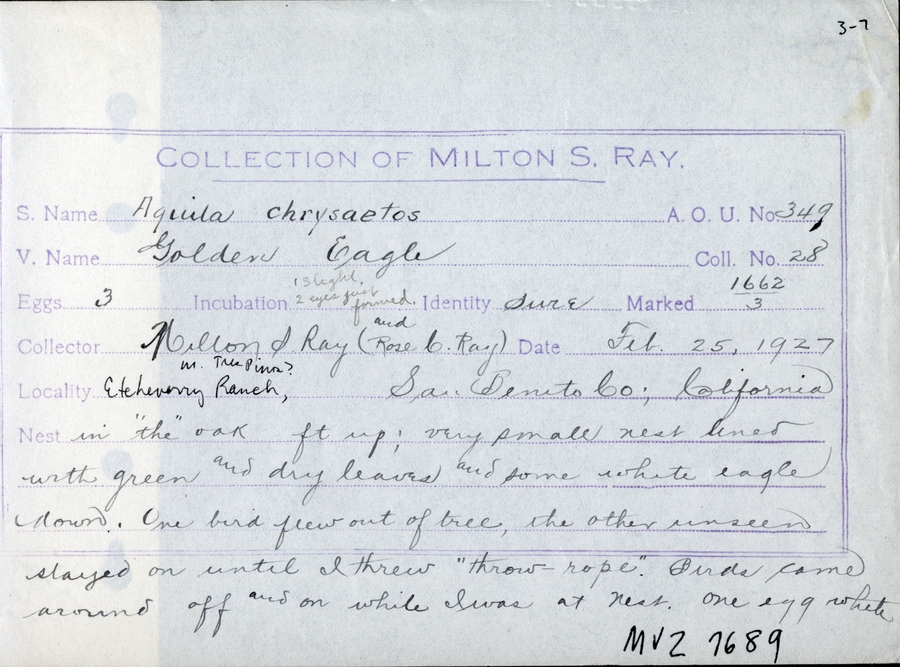 3-7
COLLECTION OF MILTON S. RAY.
S. Name Aquila chrysaetos A. O. U. No. 349
V. Name Golden Eagle Coll. No. 28
Eggs 3 Incubation 1 slight, 2 eyes just formed. Identity sure Marked 1662/3
Collector Milton S Ray (and Rose C. Ray) Date Feb. 25, 1927
Locality Etcheverry Ranch, nr. Tres Pinos? San Benito Co; California
Nest in "the" oak ft up; very small nest lined
with green and dry leaves and some white eagle
down. One bird flew out of tree, the other unseen
stayed on until I threw "throw-rope". Birds came
around off and on while I was at nest. One egg white
MVZ 7689